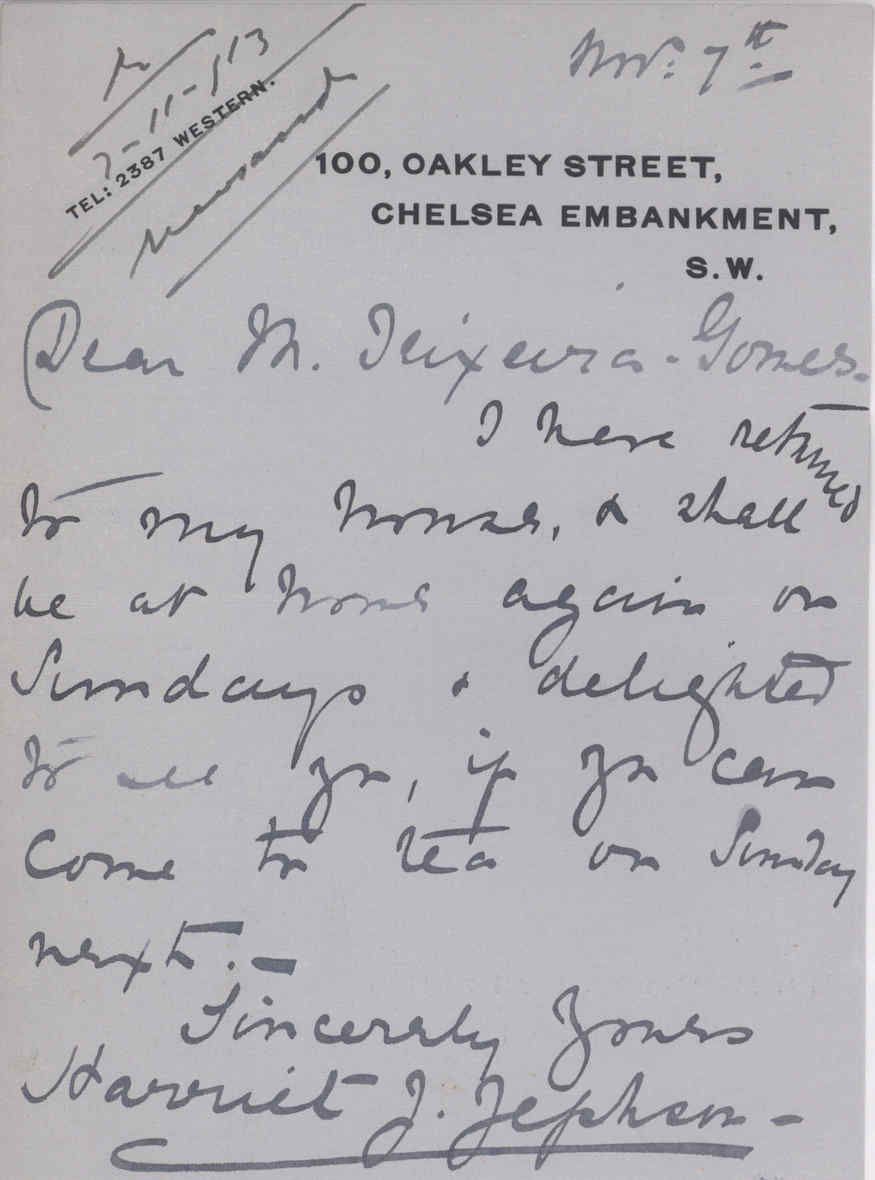 Nov. 7th
7-11-913
TEL: 2387 WESTERN.
100, OAKLEY STREET,
CHELSEA EMBANKMENT,
S.W.
Dear M. Teixeira-Gomes-
I have returned
to my house, & shall
be at home again on
Sundays & delighted
to see you, if you can
come to tea on Sunday
next. -
Sincerely Yours
Harriet J. Jephson -